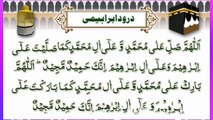 درود ابراہیمی
اَللّٰهُمَّ صَلِّ عَلٰى مُحَمَّدٍ وَّ عَلٰٓى اٰلِ مُحَمَّدٍ كَمَا صَلَّيْتَ عَلٰٓى
اِبْرٰهِيْمَ وَ عَلٰٓى اٰلِ اِبْرٰهِيْمَ اِنَّكَ حَمِيْدٌ مَّجِيْدٌ اَللّٰهُمَّ
بَارِكْ عَلٰى مُحَمَّدٍ وَّ عَلٰٓى اٰلِ مُحَمَّدٍ كَمَا بَارَكْتَ عَلٰٓى
اِبْرٰهِيْمَ وَ عَلٰٓى اٰلِ اِبْرٰهِيْمَ اِنَّكَ حَمِيْدٌ مَّجِيْدٌ